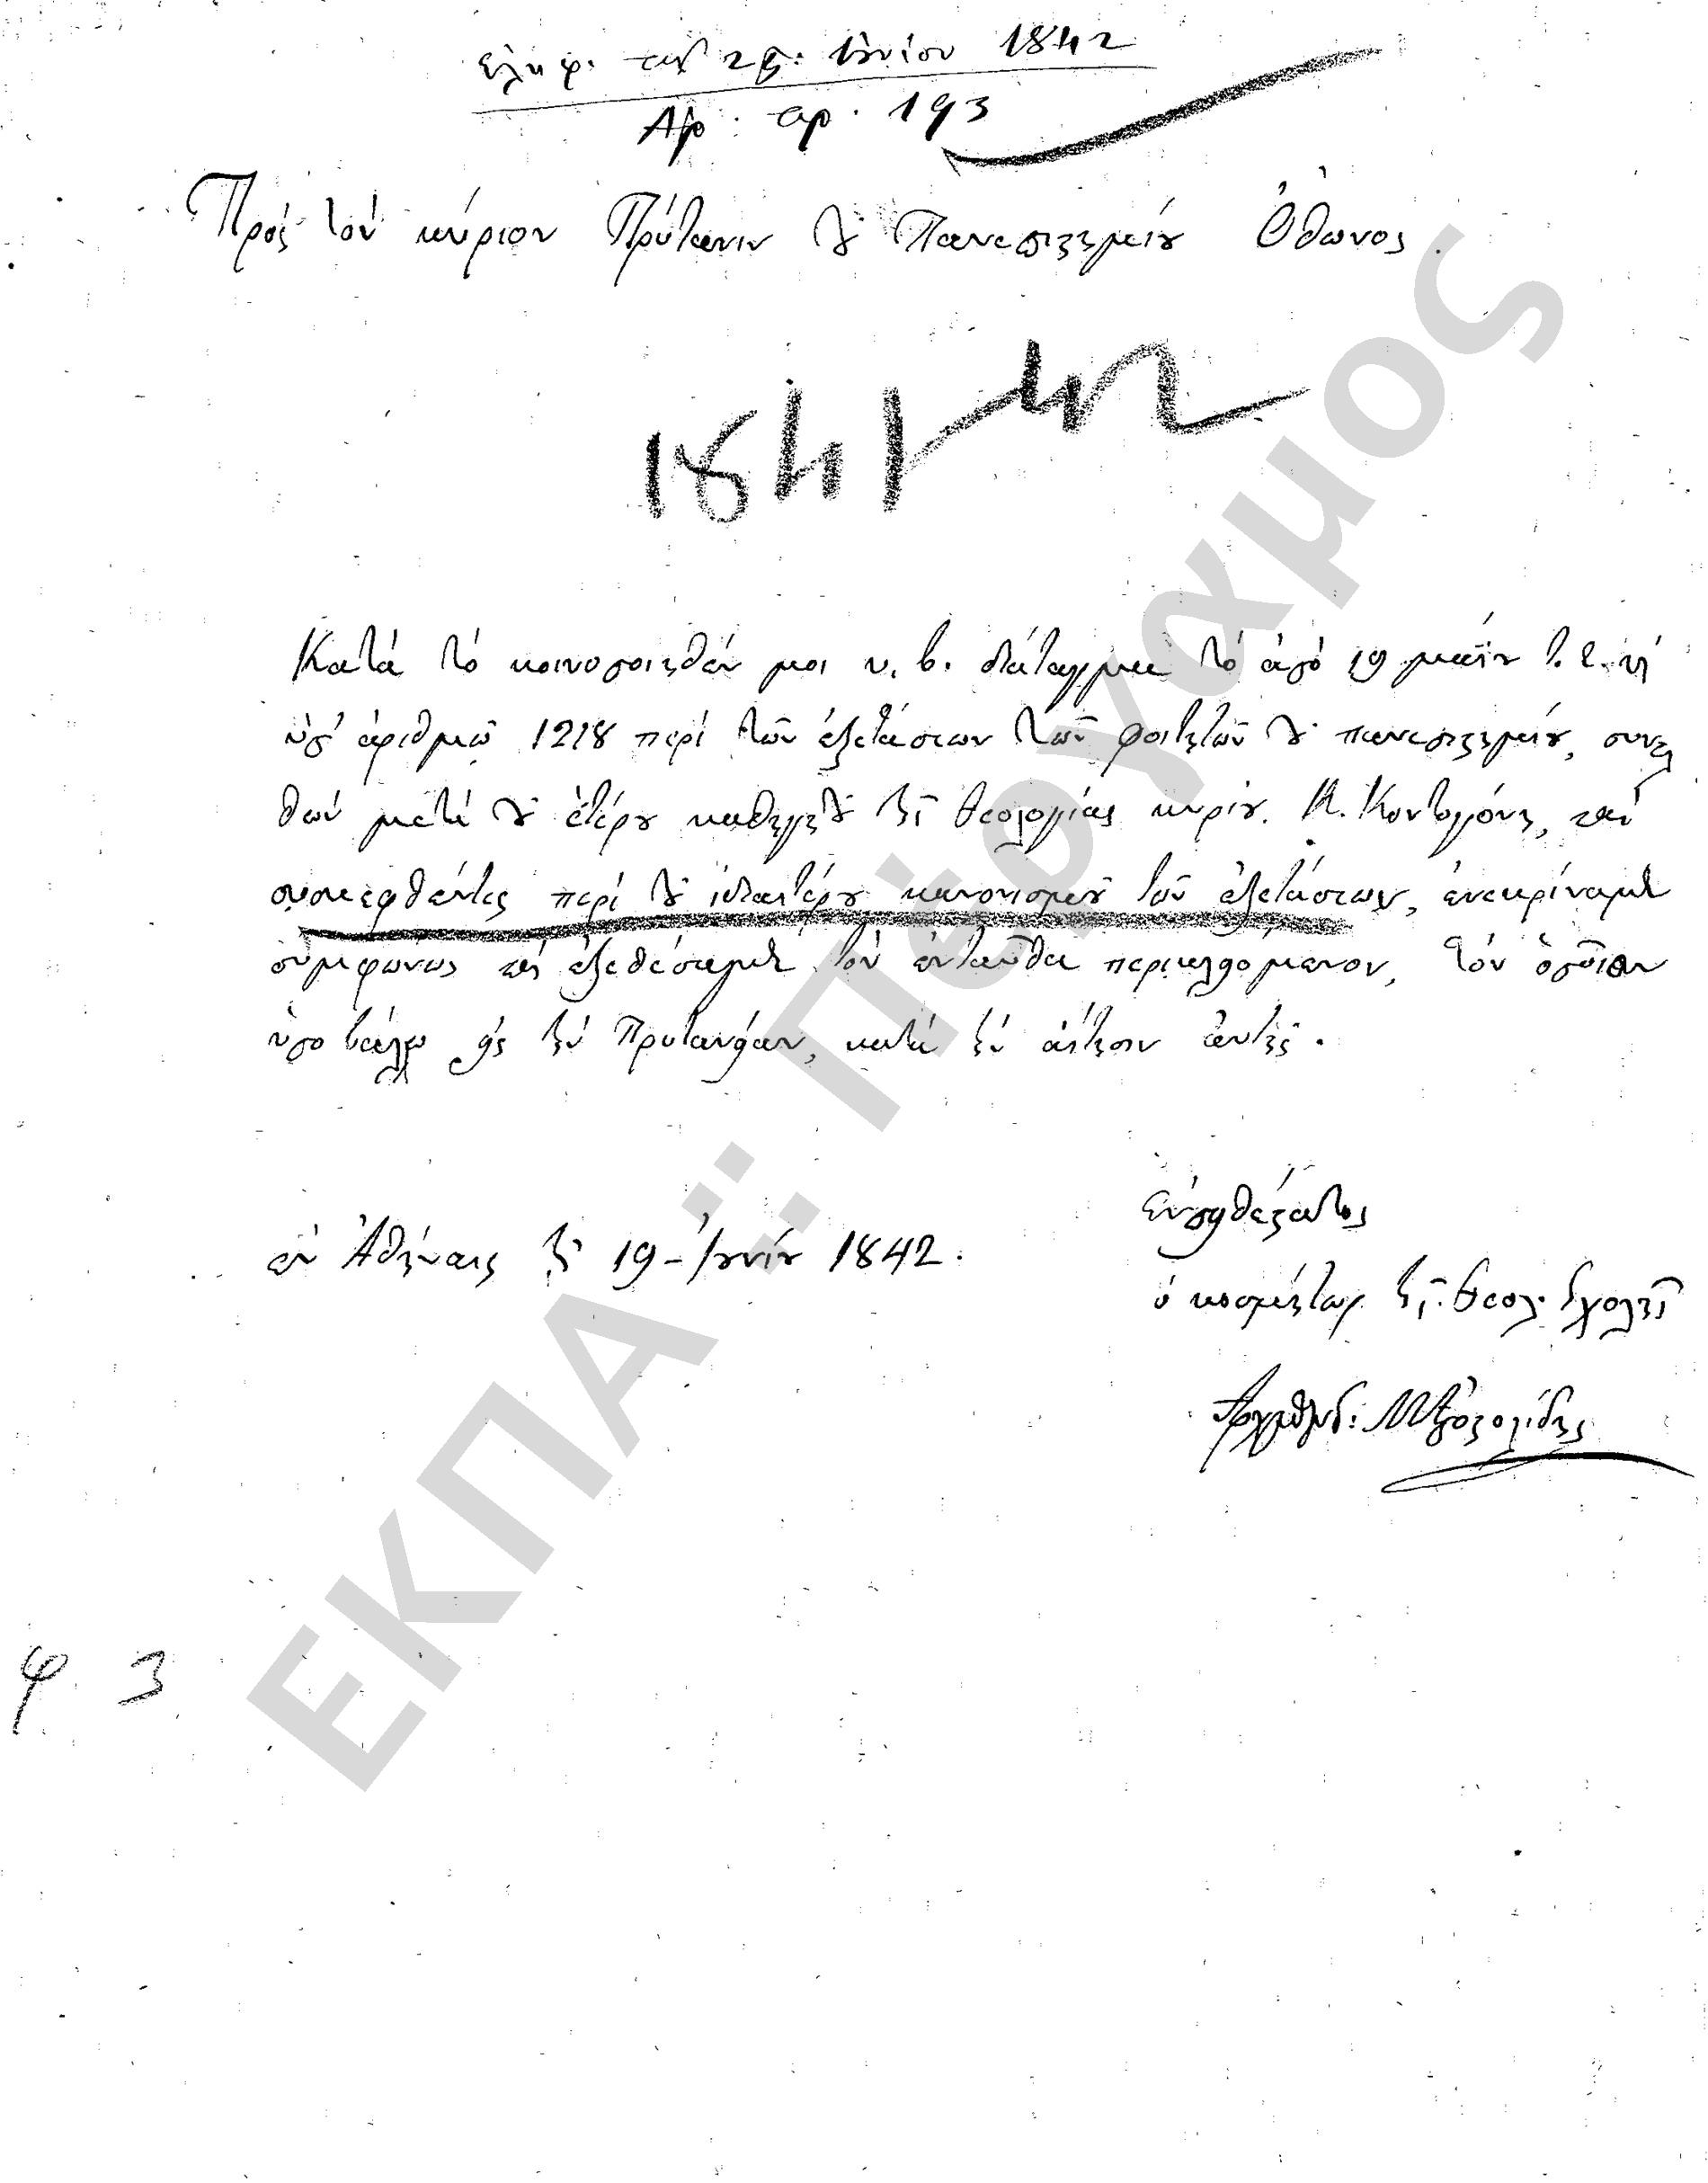 Ἐλήφ. τὴν 26. Ἰουνίου 1842
Ἀρ. πρ. 193
Πρὸς τὸν κύριον Πρύτανιν τοῦ Πανεπιστημείου Ὄθωνος.
1841-42
Κατὰ τὸ κοινοποιηθέν μοι ὑ. β. διάταγμα τὸ ἀπὸ 19 μαΐου τ. ἔ. καὶ
ὑπ' ἀριθμῷ 1218 περὶ τῶν ἐξετάσεων τῶν φοιτητῶν τοῦ πανεπιστημείου, συνελ
θὼν μετὰ τοῦ ἑτέρου καθηγητοῦ τῆς θεολογίας κυρίου. Κ. Κοντογόνη, καὶ
συσκεφθέντες περὶ τοῦ ἰδιαιτέρου κανονισμοῦ τῶν ἐξετάσεων, ἐνεκρίναμεν
συμφώνως καὶ ἐξεθέσαμεν τὸν ἐνταῦθα περικλειόμενον, τὸν ὁποῖον
ὑποβάλλω εἰς τὴν Πρυτανείαν, κατὰ τὴν αἴτησιν αὐτῆς.
ἐν Ἀθήναις τῇ 19 - Ἰουνίου 1842.
Εὐπειθέστατος
ὁ κοσμήτωρ τῆς θεολ. Σχολῆς
Μ. Ἀποστολίδης
φ. 3
ΕΚΠΑ :: Πέργαμος